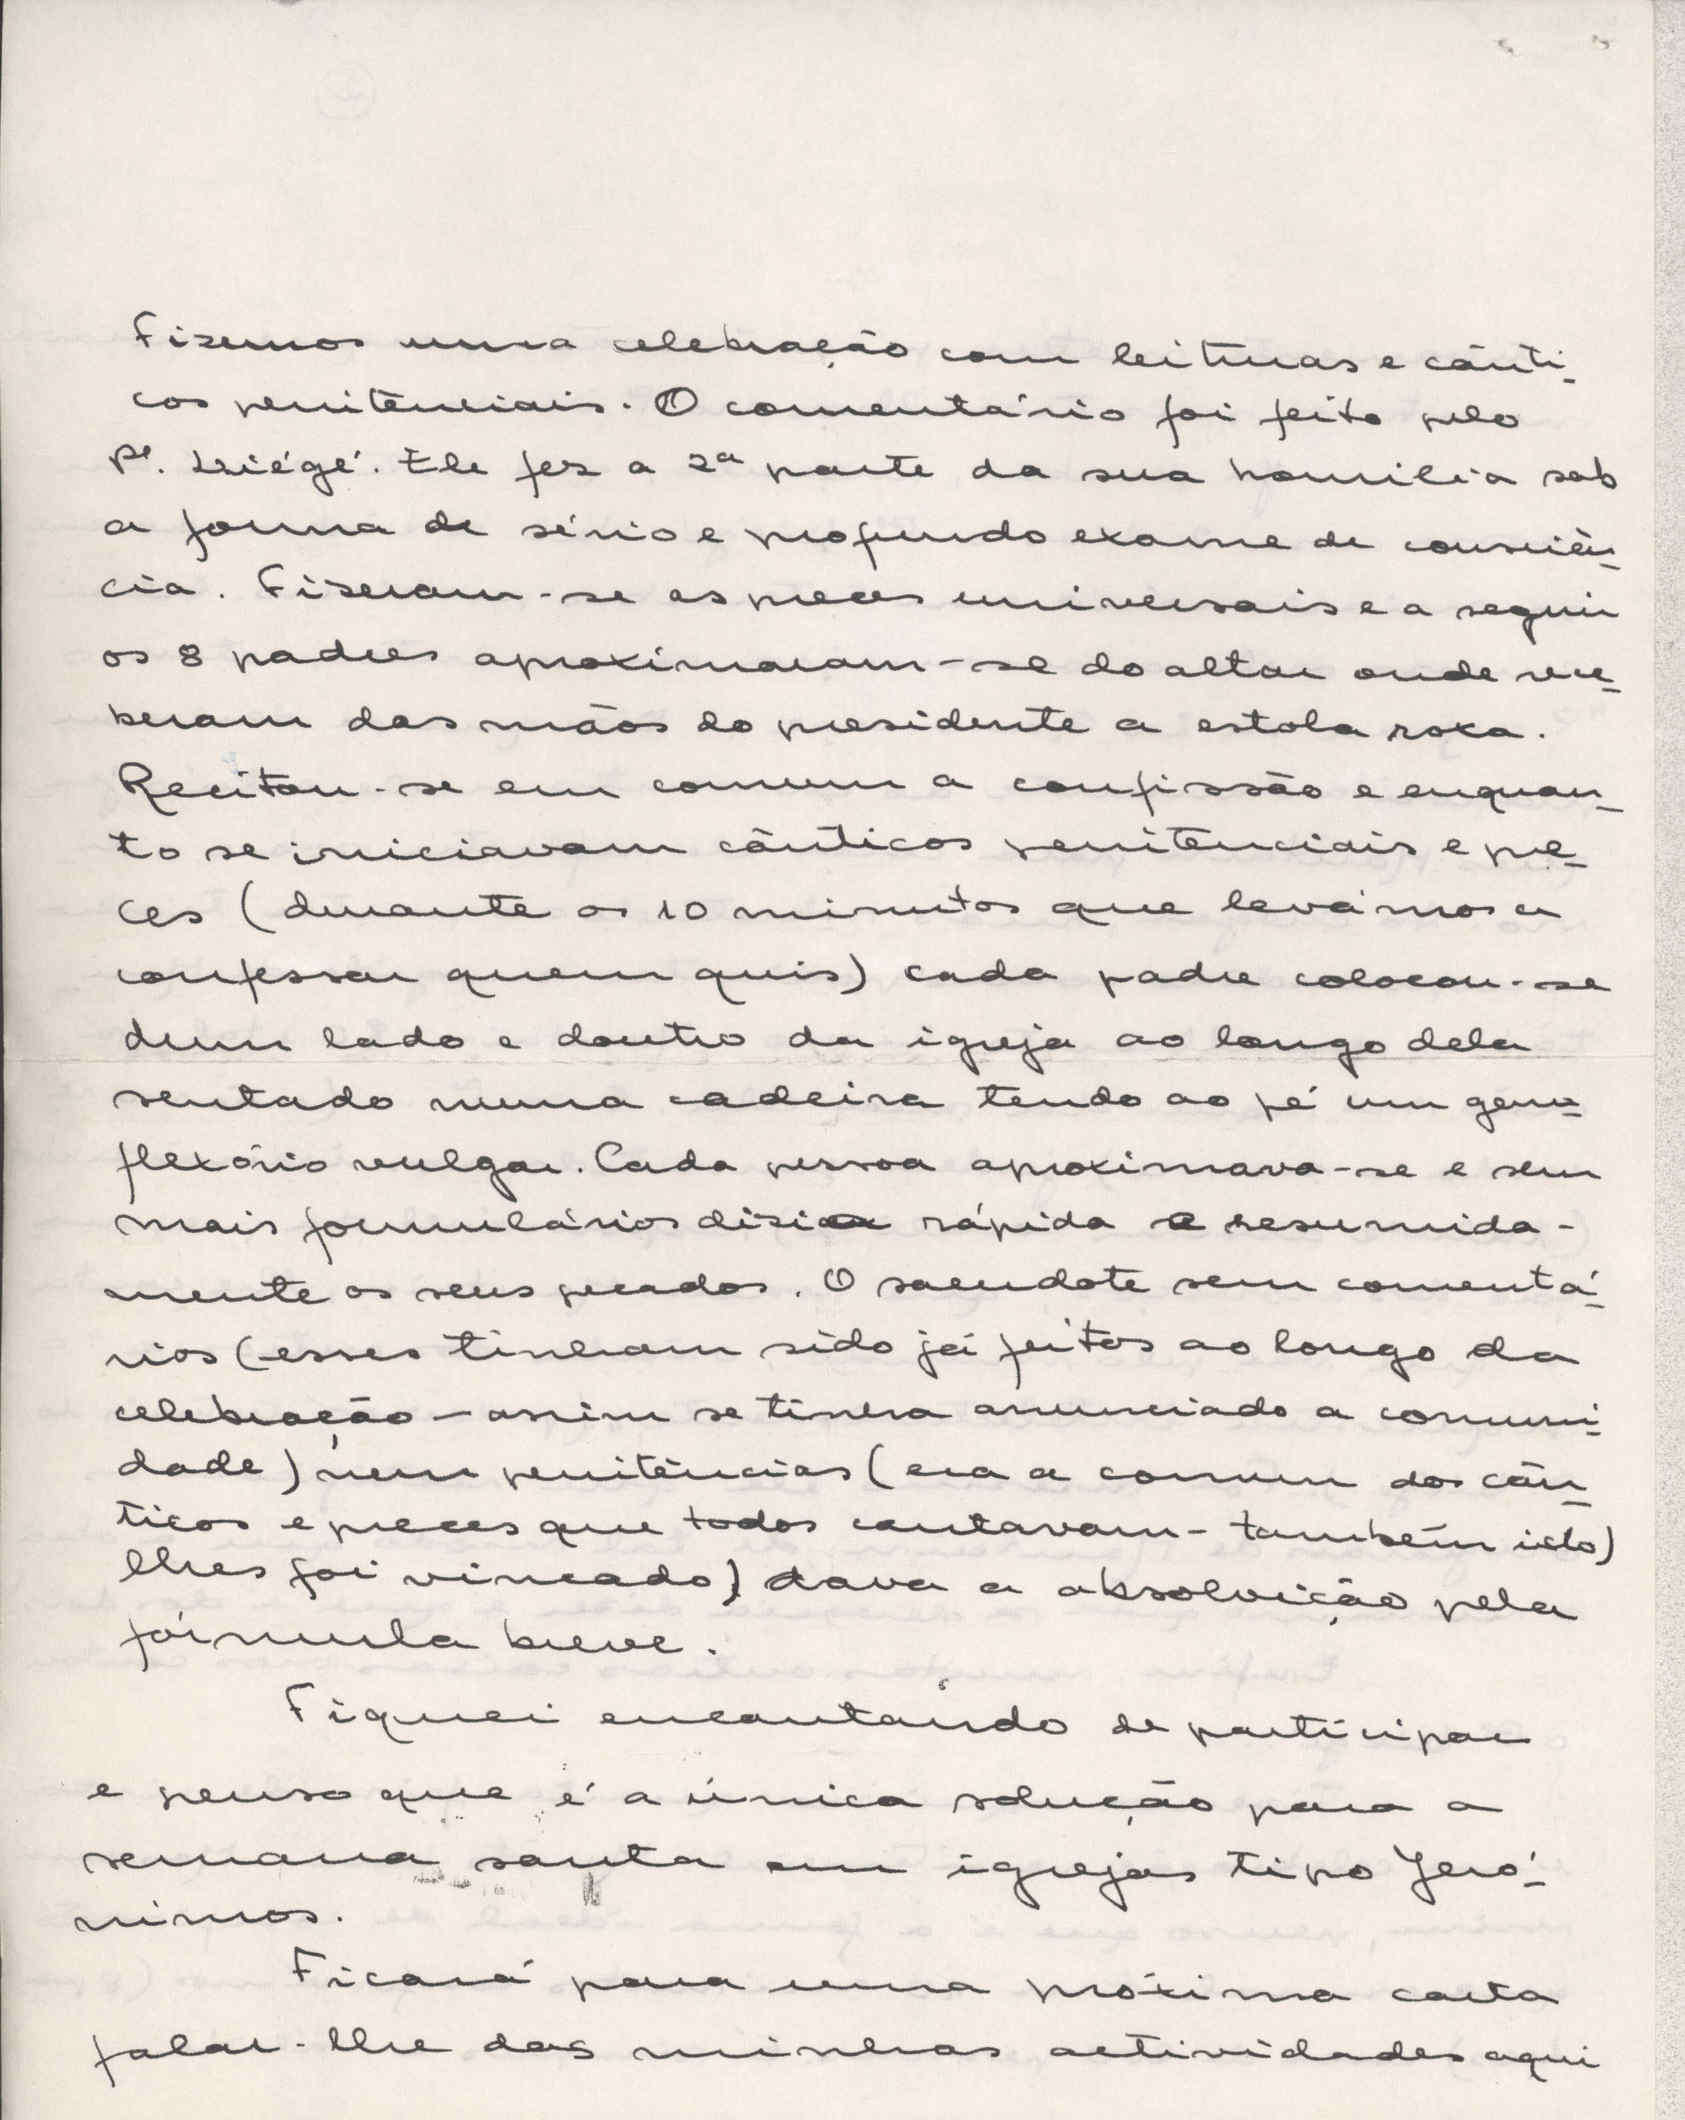 Fizemos uma celebração com leituras e cânti-
cos penitenciais. O comentário foi feito pelo
Pe. Liégé. Ele fez a 2ª parte da sua homilia sob
a forma de sério e profundo exame de consciên-
cia. Fizeram-se as preces universais e a seguir
os 8 padres aproximaram-se do altar onde rece-
beram das mãos do presidente a estola roxa.
Recitou-se em comum a confissão e enquan-
to se iniciavam cânticos penitenciais e pre-
ces (durante os 10 minutos que levámos a
confessar quem quis) cada padre colocou-se
dum lado e doutro da igreja ao longo dela
sentado numa cadeira tendo ao pé um genu-
flexório vulgar. Cada pessoa aproximava-se e sem
mais formulários dizia rápida e resumida-
mente os seus pecados. O sacerdote sem comentá-
rios (esses tinham sido já feitos ao longo da
celebração - assim se tinha anunciado a comuni-
dade) nem penitências (era a comum dos cân-
ticos e preces que todos cantavam - também isto)
lhes foi vincado) dava a absolvição pela
fórmula breve.
Fiquei encantando de participar
e penso que é a única solução para a
semana santa em igrejas tipo Jeró-
nimos.
Ficará para uma próxima carta
falar-lhe das minhas actividades aqui